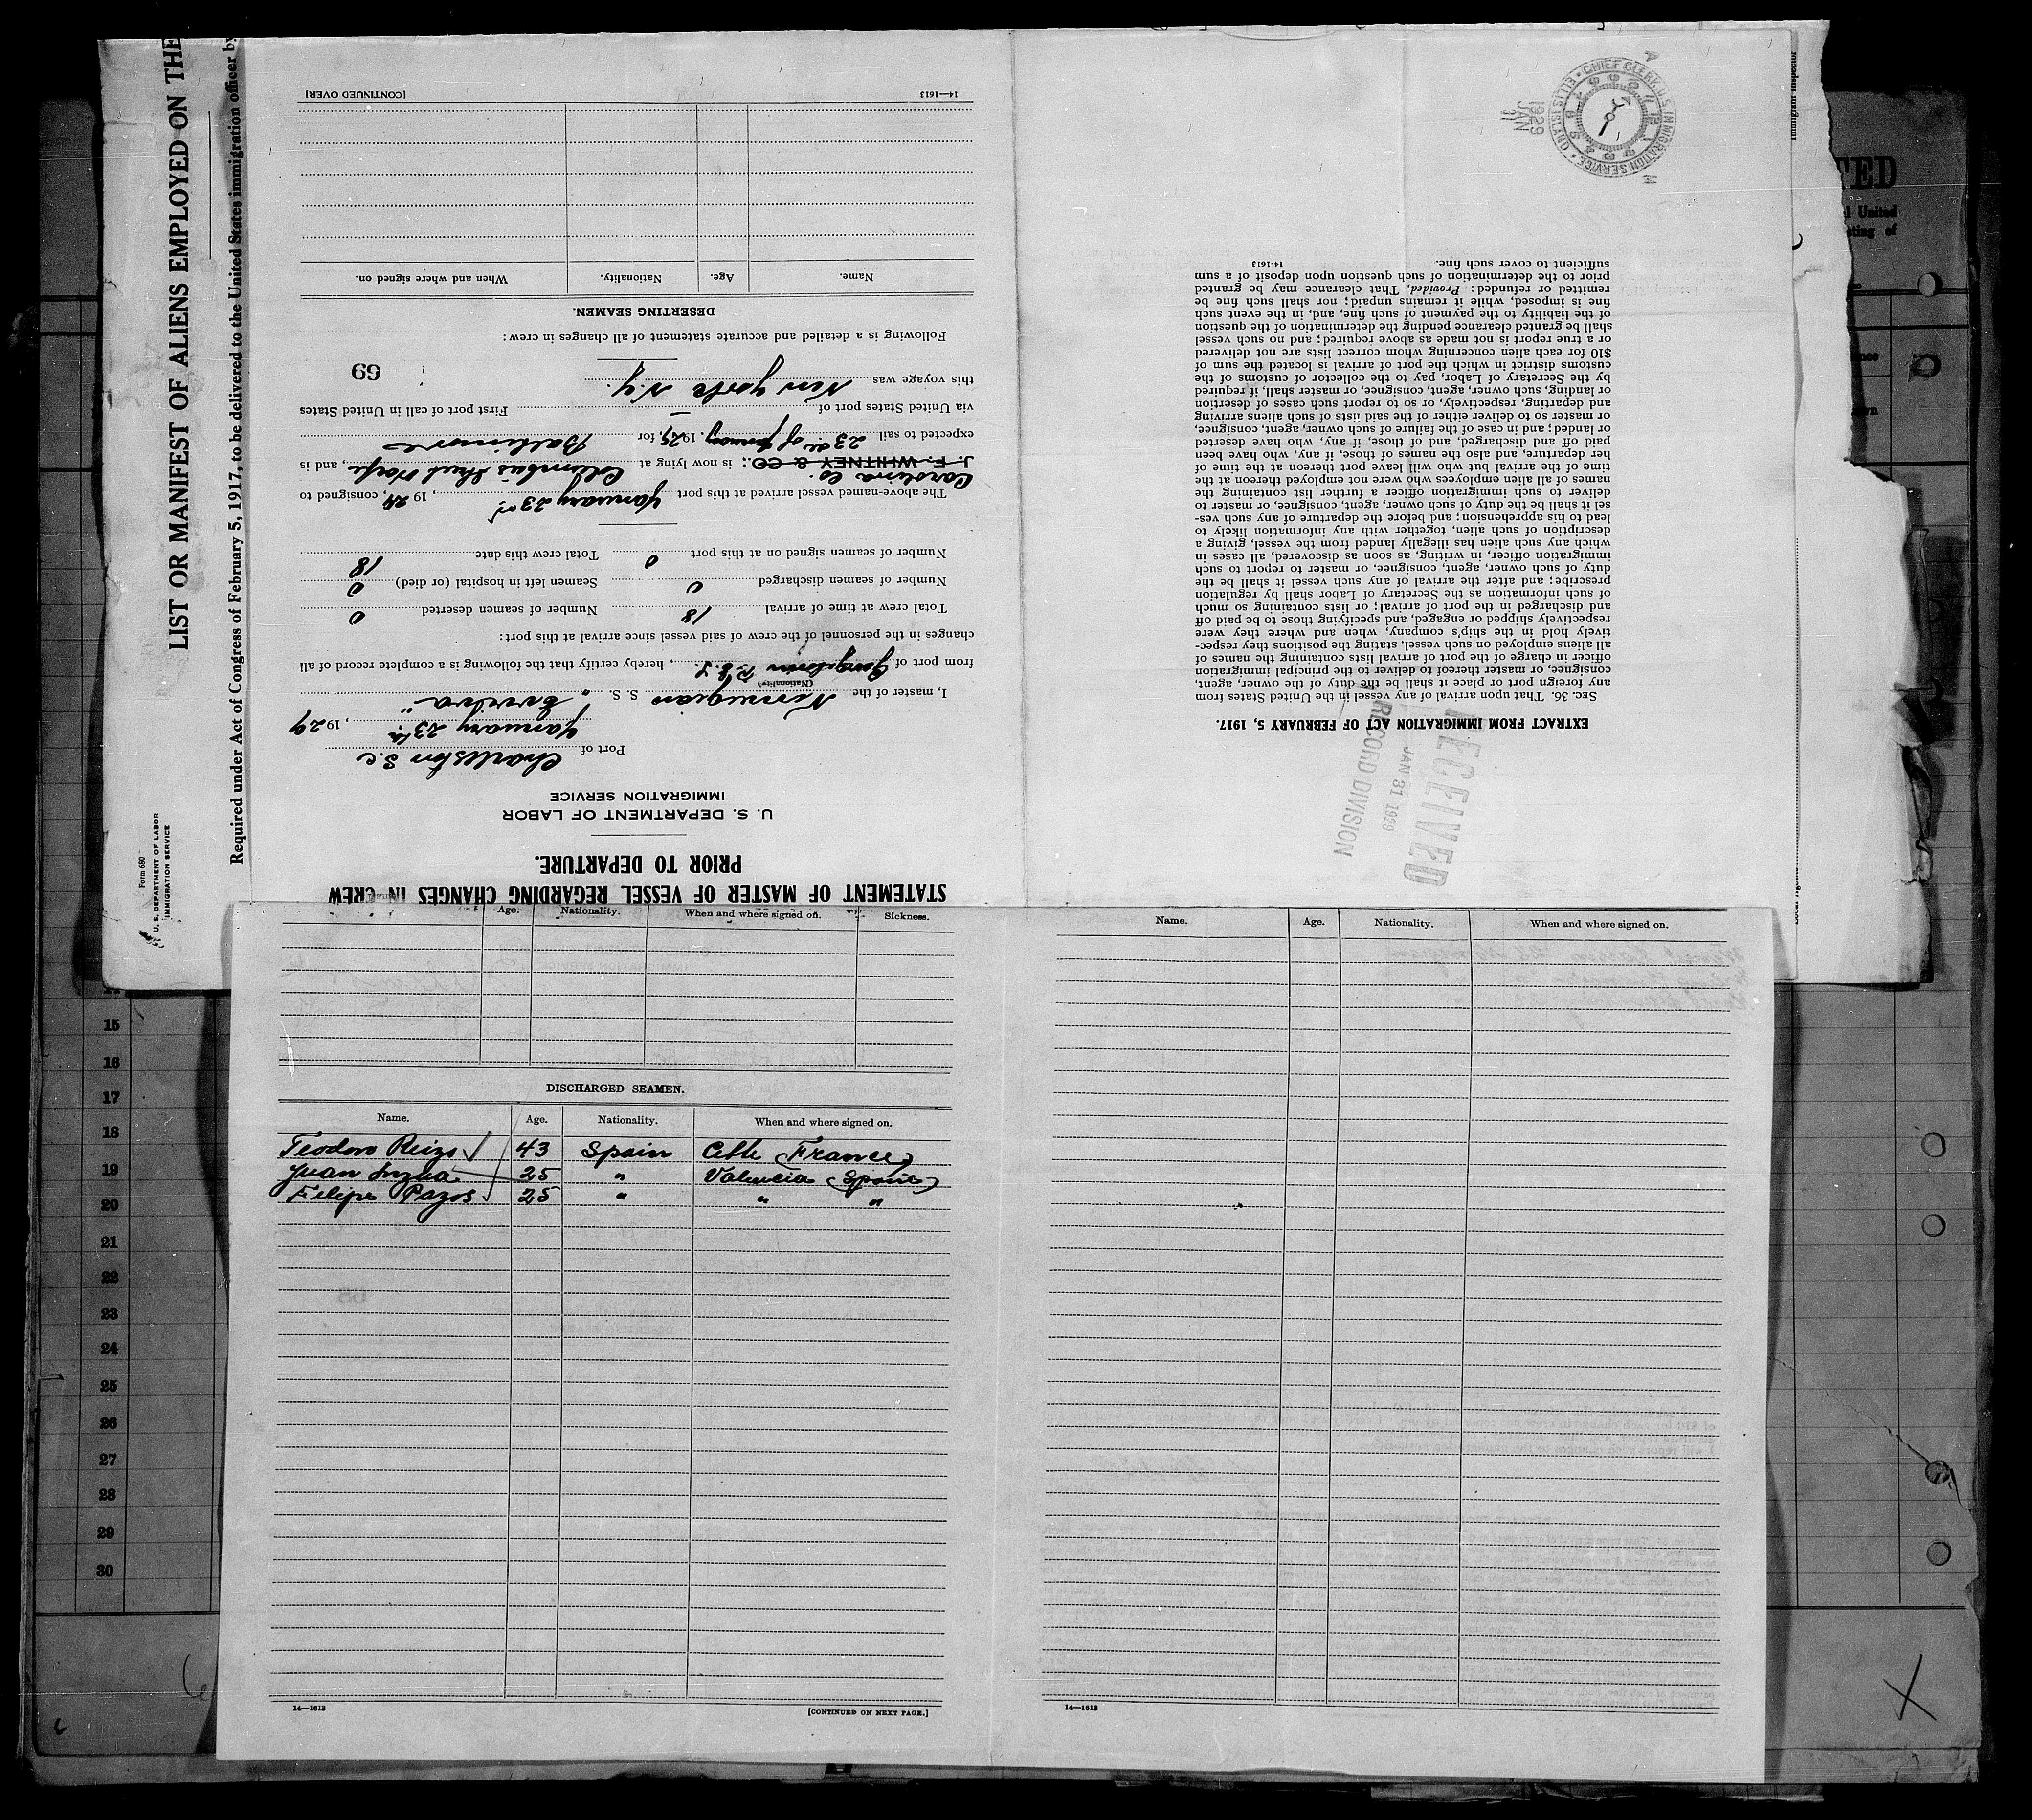 LIST OR MANIFEST OF ALIENS EMPLOYED ON THE
Required under Act of Congress of February 5, 1917, to be delivered to the United States immigration officer by
Form 680
U. S. DEPARTMENT OF LABOR
IMMIGRATION SERVICE
STATEMENT OF MASTER OF VESSEL REGARDING CHANGES IN CREW
PRIOR TO DEPARTURE.
U. S. DEPARTMENT OF LABOR
IMMIGRATION SERVICE
Port of Charleston S.C
January 23rd, 1929
I, master of the Norwegian S. S. "
(Nationality)
from port of Georgetown, hereby certify that the following is a complete record of all
changes in the personnel of the crew of said vessel since arrival at this port:
Total crew at time of arrival 18 Number of seamen deserted 0
Number of seamen discharged 0 Seamen left in hospital (or died) 0
Number of seamen signed on at this port 0 Total crew this date 18
The above-named vessel arrived at this port January 23rd, 1929, consigned to
Carolina Co.
J. F. WHITNEY & CO.; is now lying at Columbus Street Wharf, and is
expected to sail 23rd of January, 1929, for Baltimore
via United States port of First port of call in United States
this voyage was New York N.Y.
69
Following is a detailed and accurate statement of all changes in crew:
DESERTING SEAMEN.
Name. Age. Nationality. When and where signed on.
14—1613 [CONTINUED OVER]
RECEIVED
JAN 31 1929
RECORD DIVISION
EXTRACT FROM IMMIGRATION ACT OF FEBRUARY 5, 1917.
Sec. 36. That upon arrival of any vessel in the United States from
any foreign port or place it shall be the duty of the owner, agent,
consignee, or master thereof to deliver to the principal immigration
officer in charge of the port of arrival lists containing the names of
all aliens employed on such vessel, stating the positions they respec-
tively hold in the ship's company, when and where they were
respectively shipped or engaged, and specifying those to be paid off
and discharged in the port of arrival; or lists containing so much
of such information as the Secretary of Labor shall by regulation
prescribe; and after the arrival of any such vessel it shall be the
duty of such owner, agent, consignee, or master to report to such
immigration officer, in writing, as soon as discovered, all cases in
which any such alien has illegally landed from the vessel, giving a
description of such alien, together with any information likely to
lead to his apprehension; and before the departure of any such ves-
sel it shall be the duty of such owner, agent, consignee, or master to
deliver to such immigration officer a further list containing the
names of all alien employees who were not employed thereon at the
time of the arrival but who will leave port thereon at the time of
her departure, and also the names of those, if any, who have been
paid off and discharged, and of those, if any, who have deserted
or landed; and in case of the failure of such owner, agent, consignee,
or master so to deliver either of the said lists of such aliens arriving
and departing, respectively, or so to report such cases of desertion
or landing, such owner, agent, consignee, or master shall, if required
by the Secretary of Labor, pay to the collector of customs of the
customs district in which the port of arrival is located the sum of
$10 for each alien concerning whom correct lists are not delivered
or a true report is not made as above required; and no such vessel
shall be granted clearance pending the determination of the question
of the liability to the payment of such fine, and, in the event such
fine is imposed, while it remains unpaid; nor shall such fine be
remitted or refunded: Provided, That clearance may be granted
prior to the determination of such question upon deposit of a sum
sufficient to cover such fine.
14-1613
CHIEF CLERK, U.S. IMMIGRATION SERVICE • ELLIS ISLAND
1929
JAN
31
A
M
Immigrant Inspector
TED
United
sting of
Age. Nationality. When and where signed on. Sickness.
DISCHARGED SEAMEN.
Name. Age. Nationality. When and where signed on.
Teodoro Reizo 43 Spain Cette (France)
Juan Inzua 25 " Valencia (Spain)
Felipe Pazos 25 " " "
14—1613 [CONTINUED ON NEXT PAGE.]
Name. Age. Nationality. When and where signed on.
14—1613
15
16
17
18
19
20
21
22
23
24
25
26
27
28
29
30
X